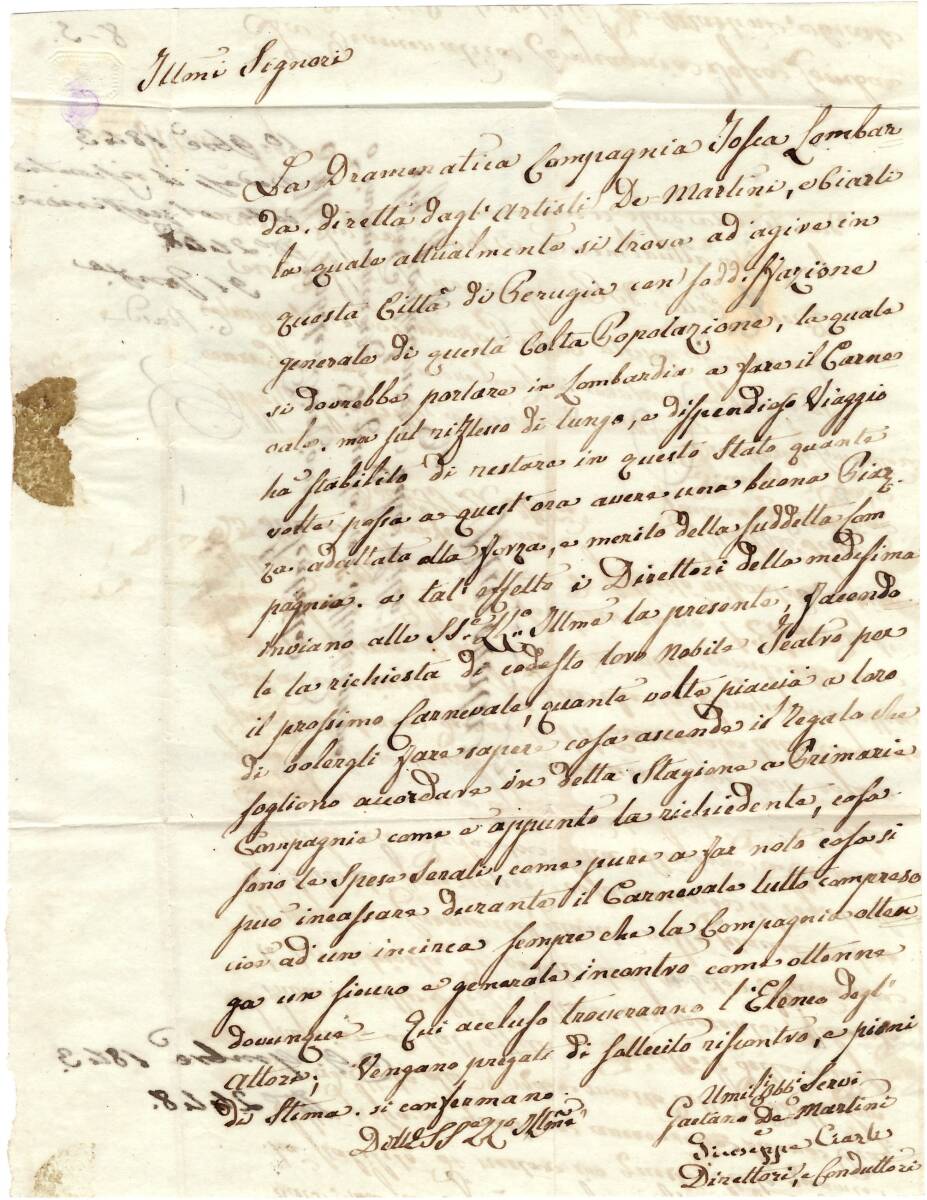 Illmi Signori
La Dramenatica Compagnia Tosca Lombar
da. diretta dagl' Artisti De-Martini, e Ciarli
la quale attualmente si trova ad agire in
questa Città di Perugia con soddisfazione
generale di questa Colta Popolazione, la quale
si dovrebbe portare in Lombardia a fare il Carne
vale. ma sul riflesso di lungo, e dispendioso Viaggio
ha stabilito di restare in questo Stato quante
volte possa a quest'ora avere una buona Piaz
za adattata alla forza, e merito della suddetta Com
pagnia. a tal' effetto i Direttori della medesima
inviano alle SS.e Illme la presente, facendo
le la richiesta di codesto loro nobile Teatro per
il prossimo Carnevale, quante volte piaccia a loro
di volergli fare sapere cosa ascende il Regalo che
sogliono accordare in detta Stagione a Primarie
Compagnie come e appunto la richiedente, cosa
sono le Spese Serali, come pure a far noto cosa si
può incassare durante il Carnevale tutto compreso
cioè ad un incirca sempre che la Compagnia otten
ga un sicuro e generale incontro come ottenne
dovunque - Qui accluso troveranno l'Elenco degl'
Attori; Vengano pregati di sollecito riscontro, e pieni
di Stima. si confermano.
Delle SS. Illme
Umi Obbi Servi
Gaetano De-Martini
Giuseppe Ciarli
Direttori, e Conduttori